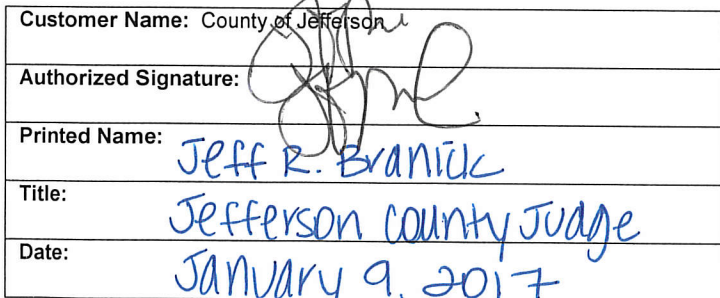 Customer Name: County of Jefferson
Authorized Signature:
Printed Name: Jeff R. Branick
Title: Jefferson County Judge
Date: January 9, 2017